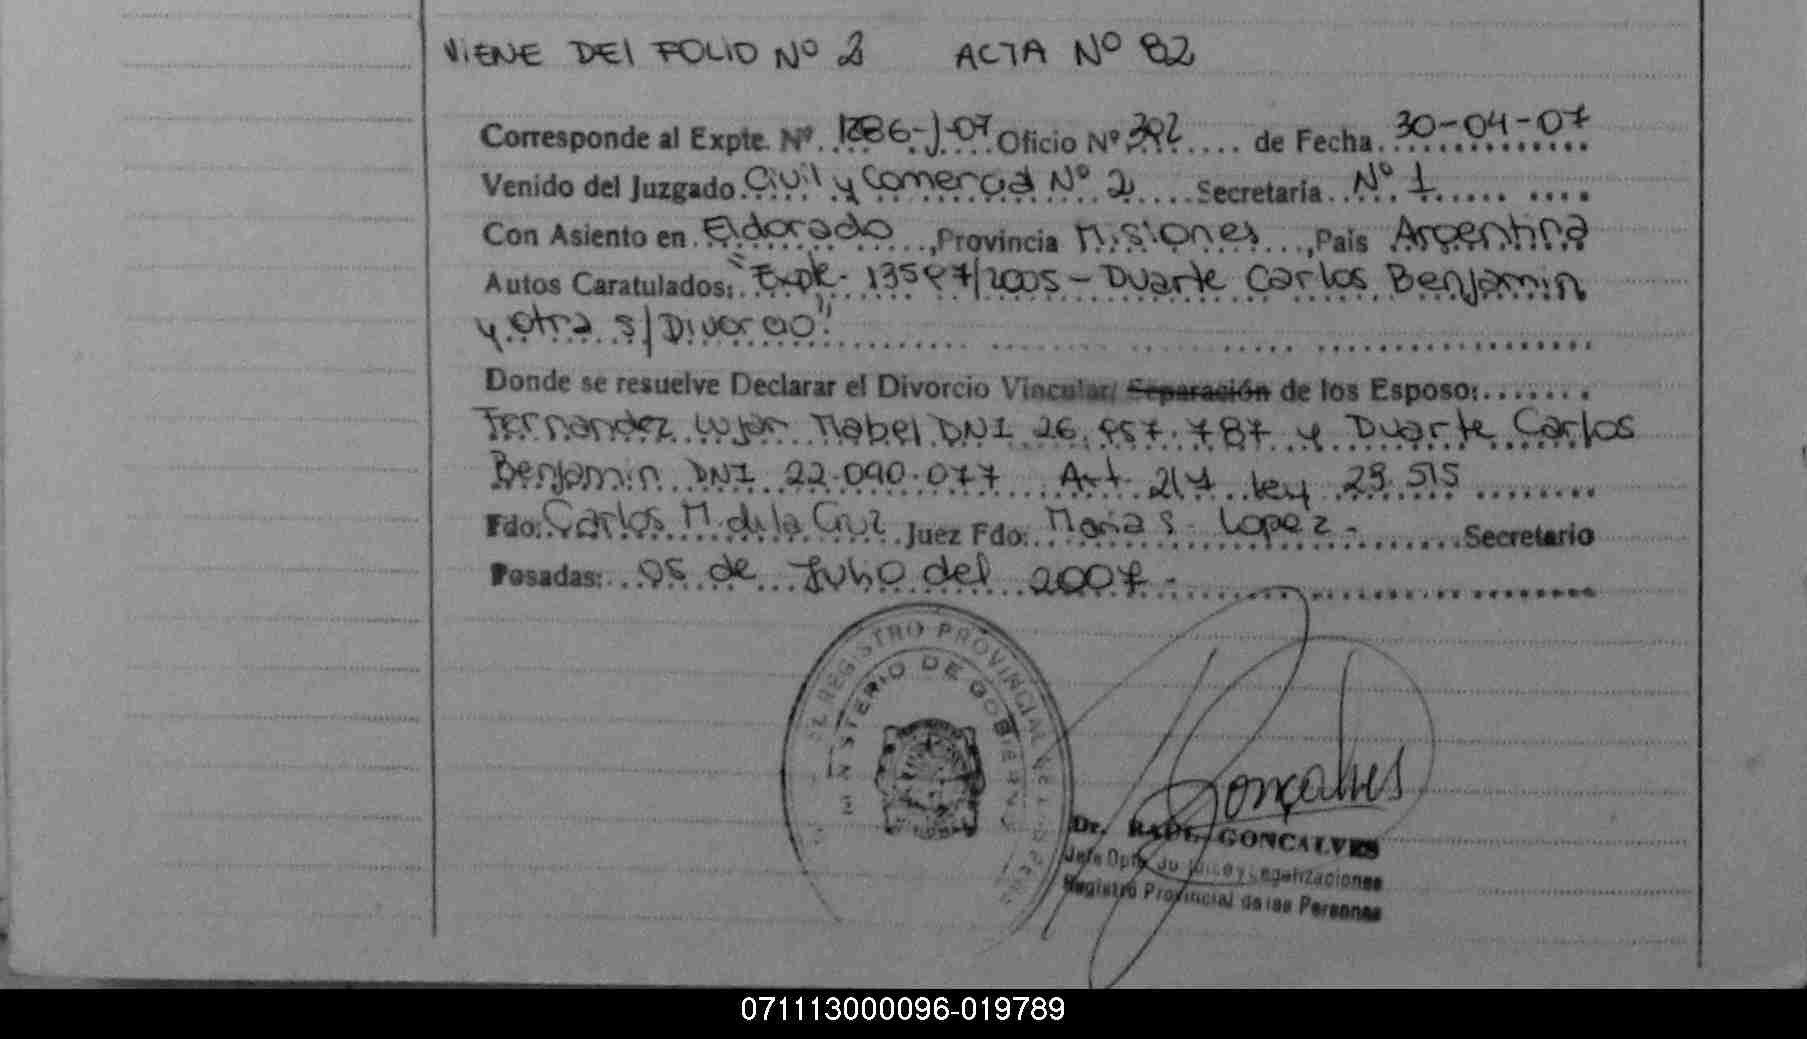 VIENE DEl FOLIO Nº 2 ACTA Nº 82
Corresponde al Expte. Nº. 1286-J-07 Oficio Nº 392 de Fecha 30-04-07
Venido del Juzgado Civil y Comercial Nº 2 Secretaría Nº 1
Con Asiento en Eldorado, Provincia Misiones, País Argentina
Autos Caratulados: "Expte. 13597/2005 - Duarte Carlos Benjamin
y otra s/Divorcio"
Donde se resuelve Declarar el Divorcio Vincular/ Separación de los Esposo:
Fernandez Lujan Mabel DNI 26.957.787 y Duarte Carlos
Benjamin DNI 22.090.077 Art. 217 ley 23.515
Fdo: Carlos M. de la Cruz Juez Fdo: Maria S. Lopez - Secretario
Posadas: 05 de Julio del 2007 -
REGISTRO PROVINCIAL DE LAS PERSONAS
MINISTERIO DE GOBIERNO
Gonçalves
Dr. RAUL GONCALVES
Jefe Dpto. Jurídico y Legalizaciones
Registro Provincial de las Personas
071113000096-019789